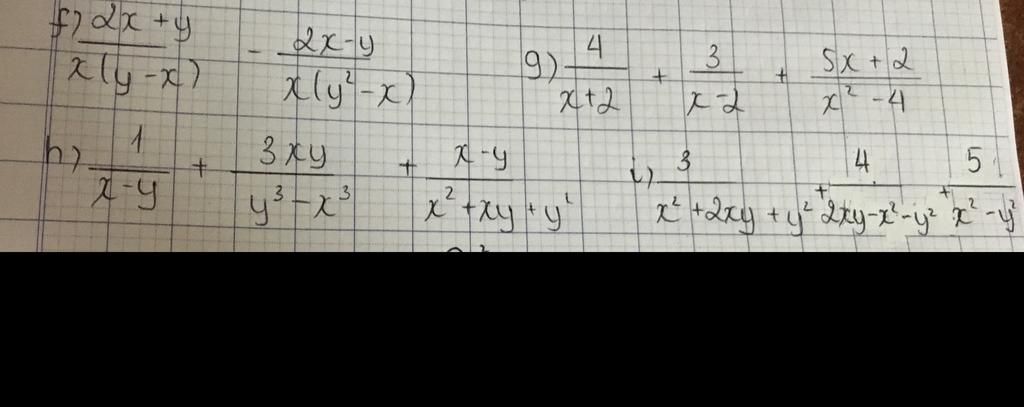 f) (2x + y)/(x(y - x)) - (2x - y)/(x(y² - x)) g) 4/(x + 2) + 3/(x - 2) + (5x + 2)/(x² - 4)
h) 1/(x - y) + 3xy/(y³ - x³) + (x - y)/(x² + xy + y²) i) 3/(x² + 2xy + y²) + 4/(2xy - x² - y²) + 5/(x² - y²)